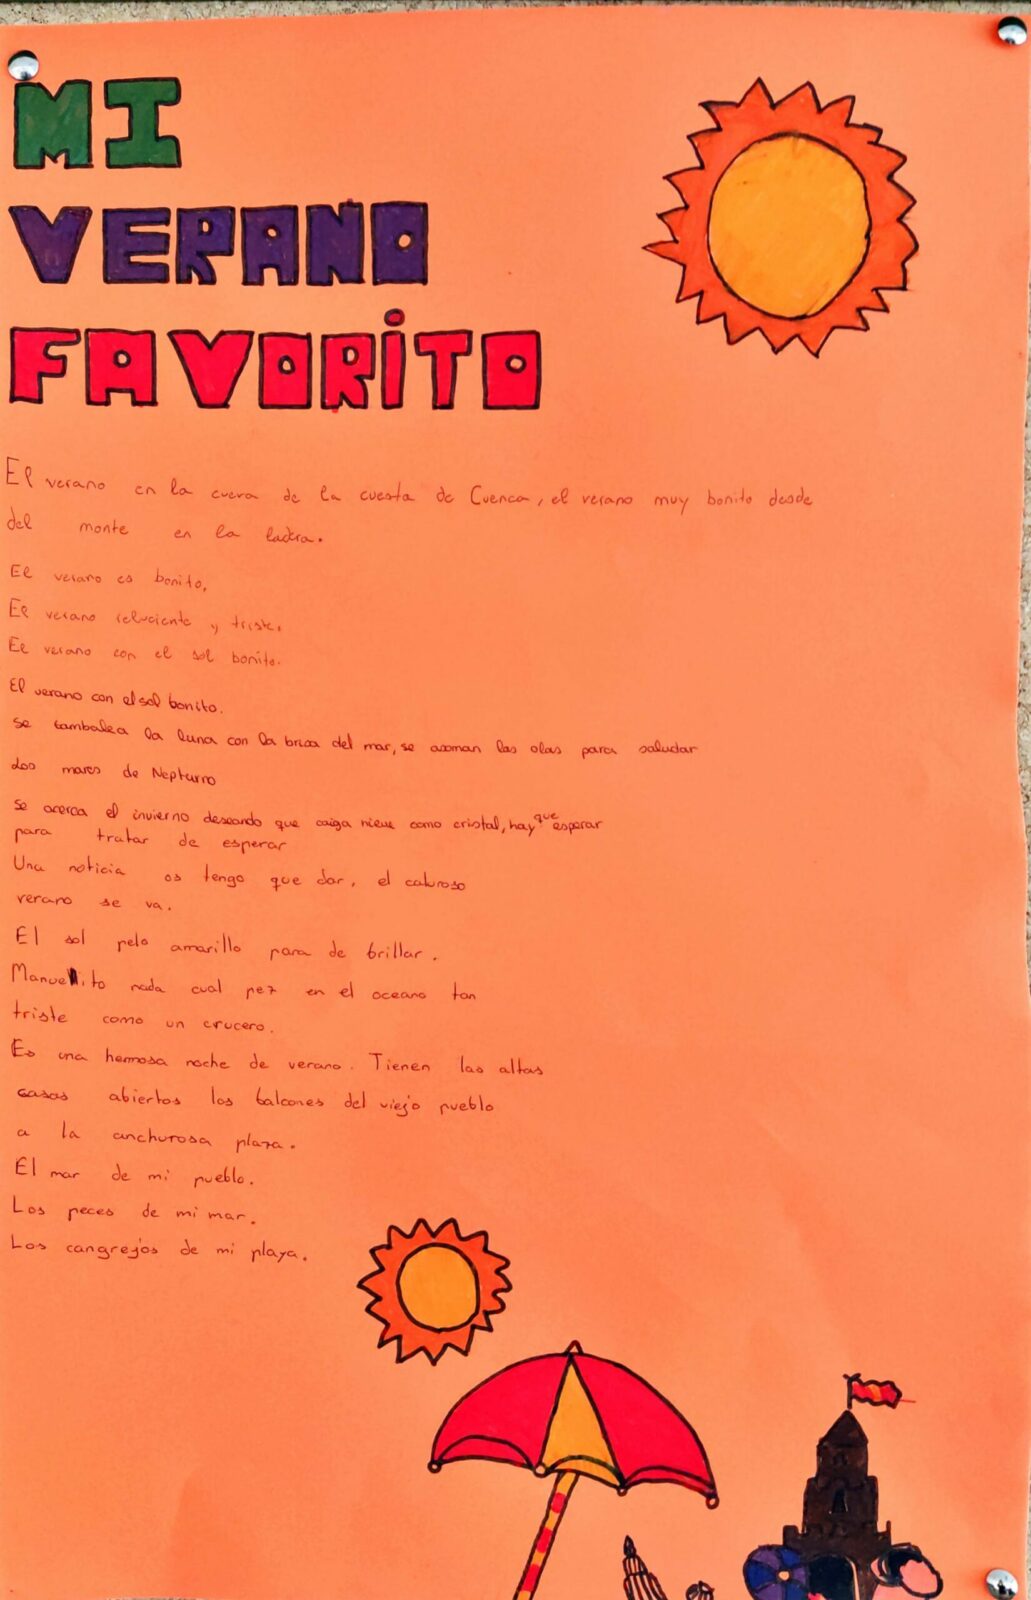 MI
VERANO
FAVORITO
El verano en la cueva de la cuesta de Cuenca, el verano muy bonito desde
del monte en la ladra.
El verano es bonito,
El verano reluciente y triste.
El verano con el sol bonito.
El verano con el sol bonito.
se tambalea la luna con la brisa del mar, se asoman las olas para saludar
dos mares de Nepturno
se acerca el invierno deseando que caiga nieve como cristal, hay que esperar
para tratar de esperar
Una noticia os tengo que dar, el caluroso
verano se va.
El sol pelo amarillo para de brillar.
Manuelito nada cual pez en el oceano tan
triste como un crucero.
Es una hermosa noche de verano. Tienen las altas
casas abiertos los balcones del viejo pueblo
a la anchurosa plaza.
El mar de mi pueblo.
Los peces de mi mar.
Los cangrejos de mi playa.